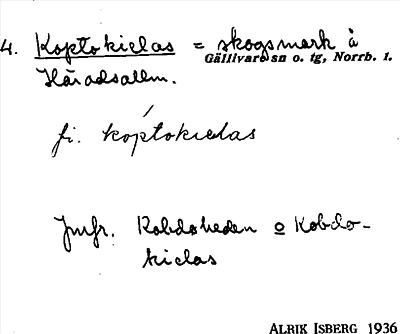 4. Koptokielas = skogsmark å
Gällivare sn o. tg, Norrb. l.
Häradsallm.
fi. kóptokielas
Jmfr. Kobdoheden o Kobdo-
kielas
ALRIK ISBERG 1936